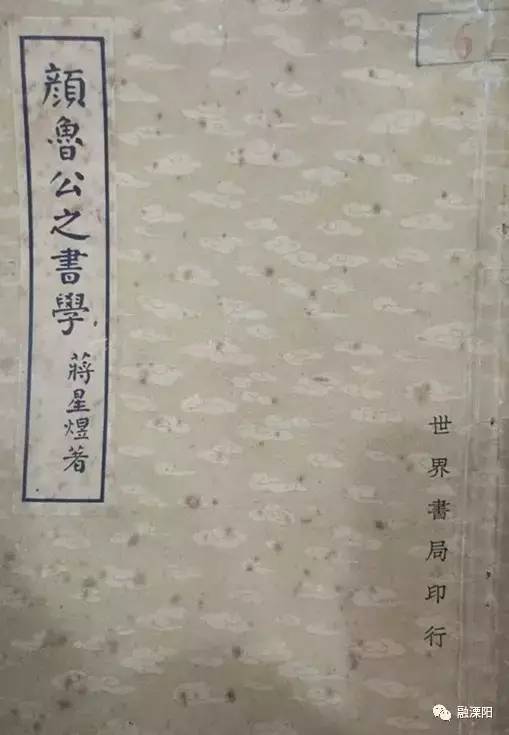 6
世界書局印行
顔魯公之書學
蔣星煜著
融溧阳